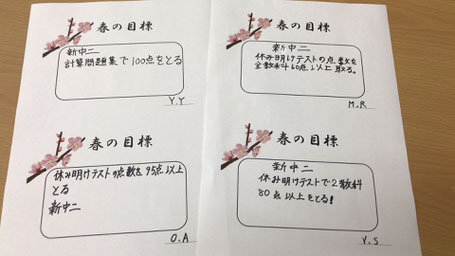 春の目標
新中二
計算問題集で100点をとる
Y.Y
春の目標
新中二
休み明けテストの点数を
全教科60点以上取る。
M.R
春の目標
休み明けテストの点数を95点以上
とる
新中二
O.A
春の目標
新中二
休み明けテストで2教科
80点以上をとる!
Y.S